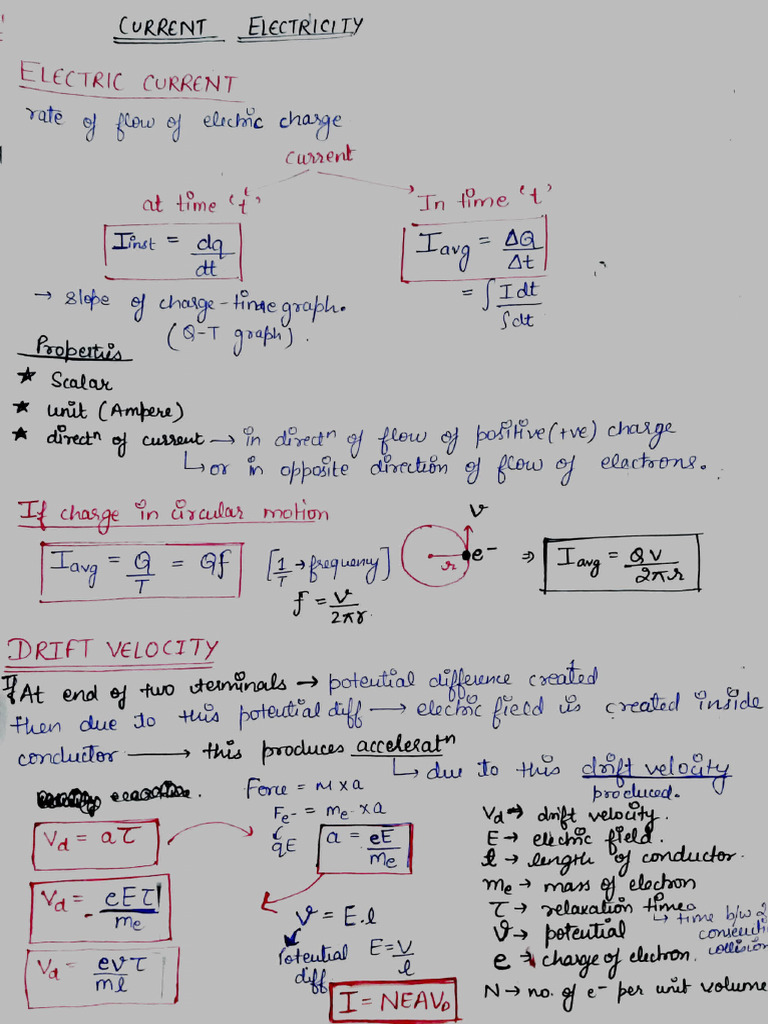 CURRENT ELECTRICITY
ELECTRIC CURRENT
rate of flow of electric charge
Current
at time 't'
In time 't'
Iinst = dq/dt
Iavg = ΔQ/Δt
= ∫Idt/∫dt
→ slope of charge-time graph.
(Q-T graph).
Properties
★ Scalar
★ unit (Ampere)
★ directⁿ of current → in directⁿ of flow of positive (+ve) charge
↳ or in opposite direction of flow of electrons.
If charge in circular motion
Iavg = Q/T = Qf [1/T → frequency]
f = v/2πr.
v
r
e⁻ ⇒ Iavg = QV/2πr
DRIFT VELOCITY
If At end of two terminals → potential difference created
then due to this potential diff → electric field is created inside
conductor → this produces acceleratⁿ
↳ due to this drift velocity
produced.
Force = M × a
Fe⁻ = me × a
qE
a = eE/me
Vd = aτ
Vd = - eEτ/me
Vd = evτ/ml
V = E.l
Potential diff
E = V/l
I = NEAVD
Vd → drift velocity.
E → electric field.
l → length of conductor.
me → mass of electron
τ → relaxation time
↳ time b/w 2
V → potential
e → charge of electron.
N → no. of e⁻ per unit volume